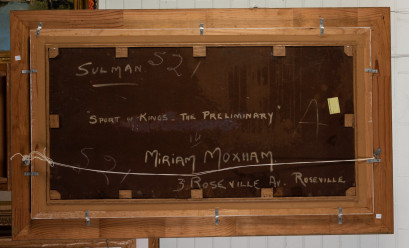 SULMAN. 521
"SPORT of KINGS. THE PRELIMINARY"
A
MIRIAM MOXHAM.
3, ROSEVILLE AV. ROSEVILLE.